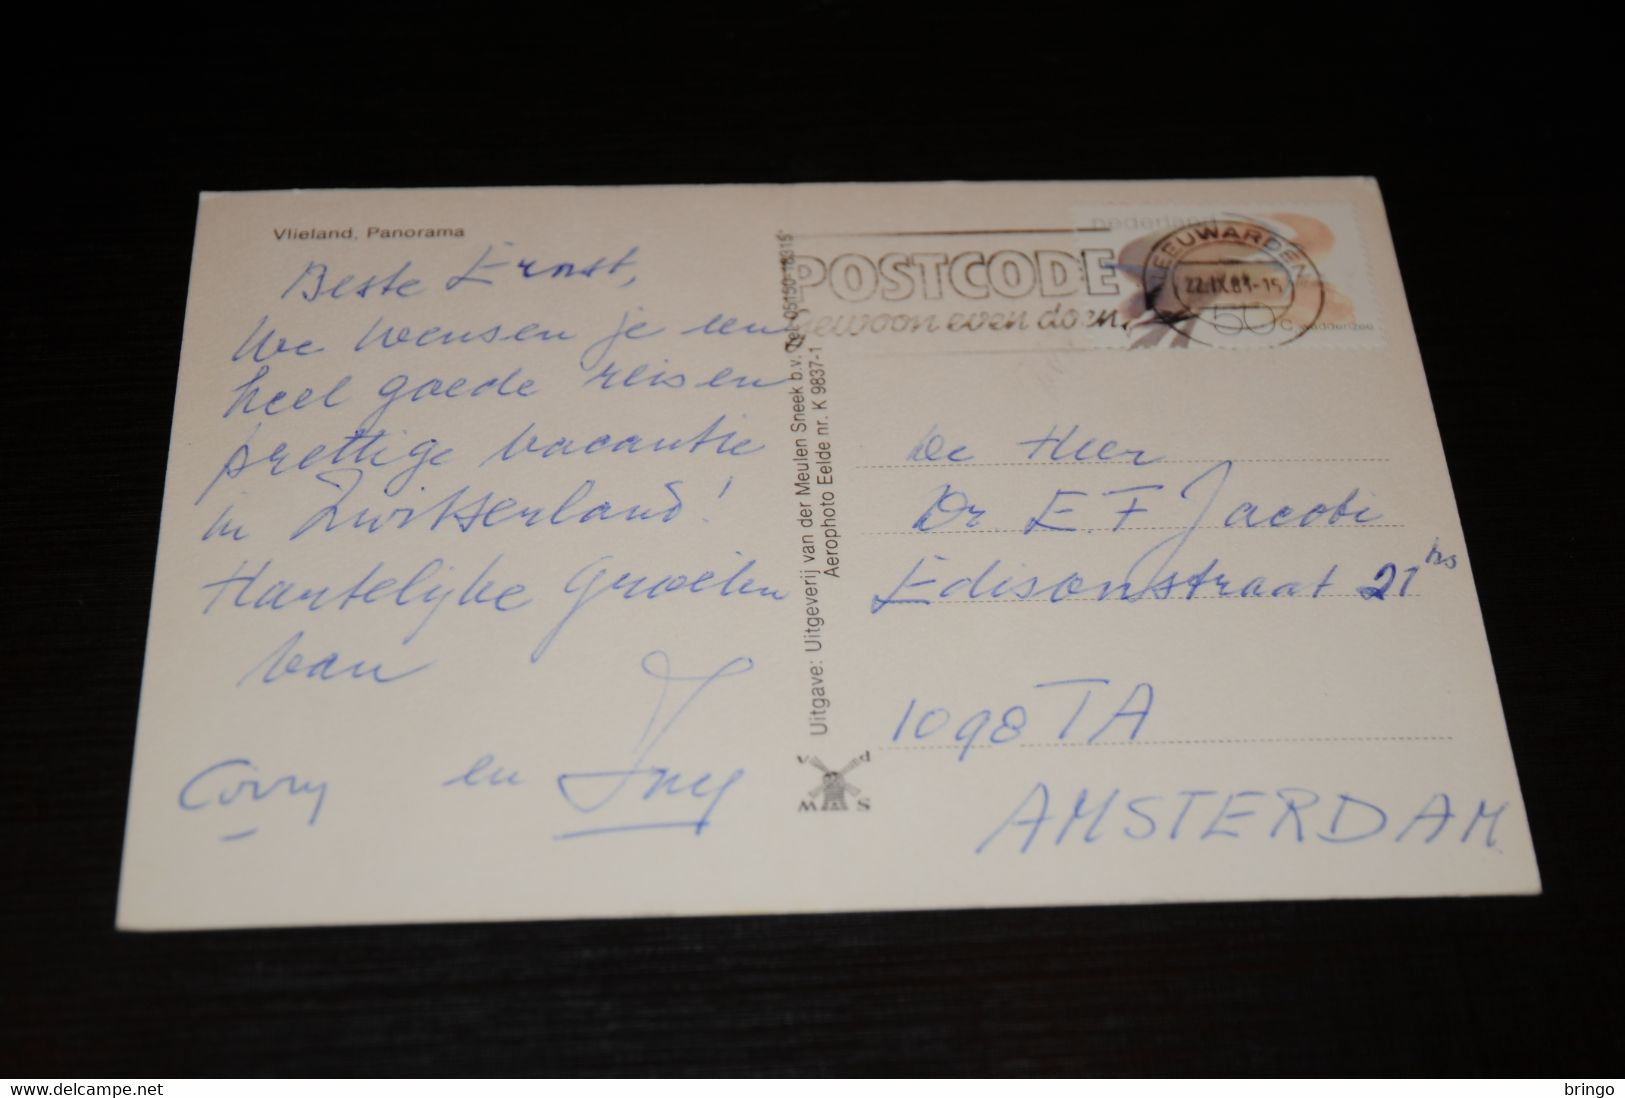 Vlieland, Panorama
Beste Ernst,
We wensen je een
heel goede reis en
prettige vacantie
in Zwitserland!
Hartelijke Groeten
van
Corry en
Uitgave: Uitgeverij van der Meulen Sneek b.v. Tel. 05150-18315
Aerophoto Eelde nr. K 9837-1
v d
M S
POSTCODE
gewoon even doen.
nederland
LEEUWARDEN
22.IX.83-15
50 c waddenzee
De Heer
Dr. E. F Jacobi
Edisonstraat 21 hs
1098 TA
AMSTERDAM
https://www.delcampe.net
bringo